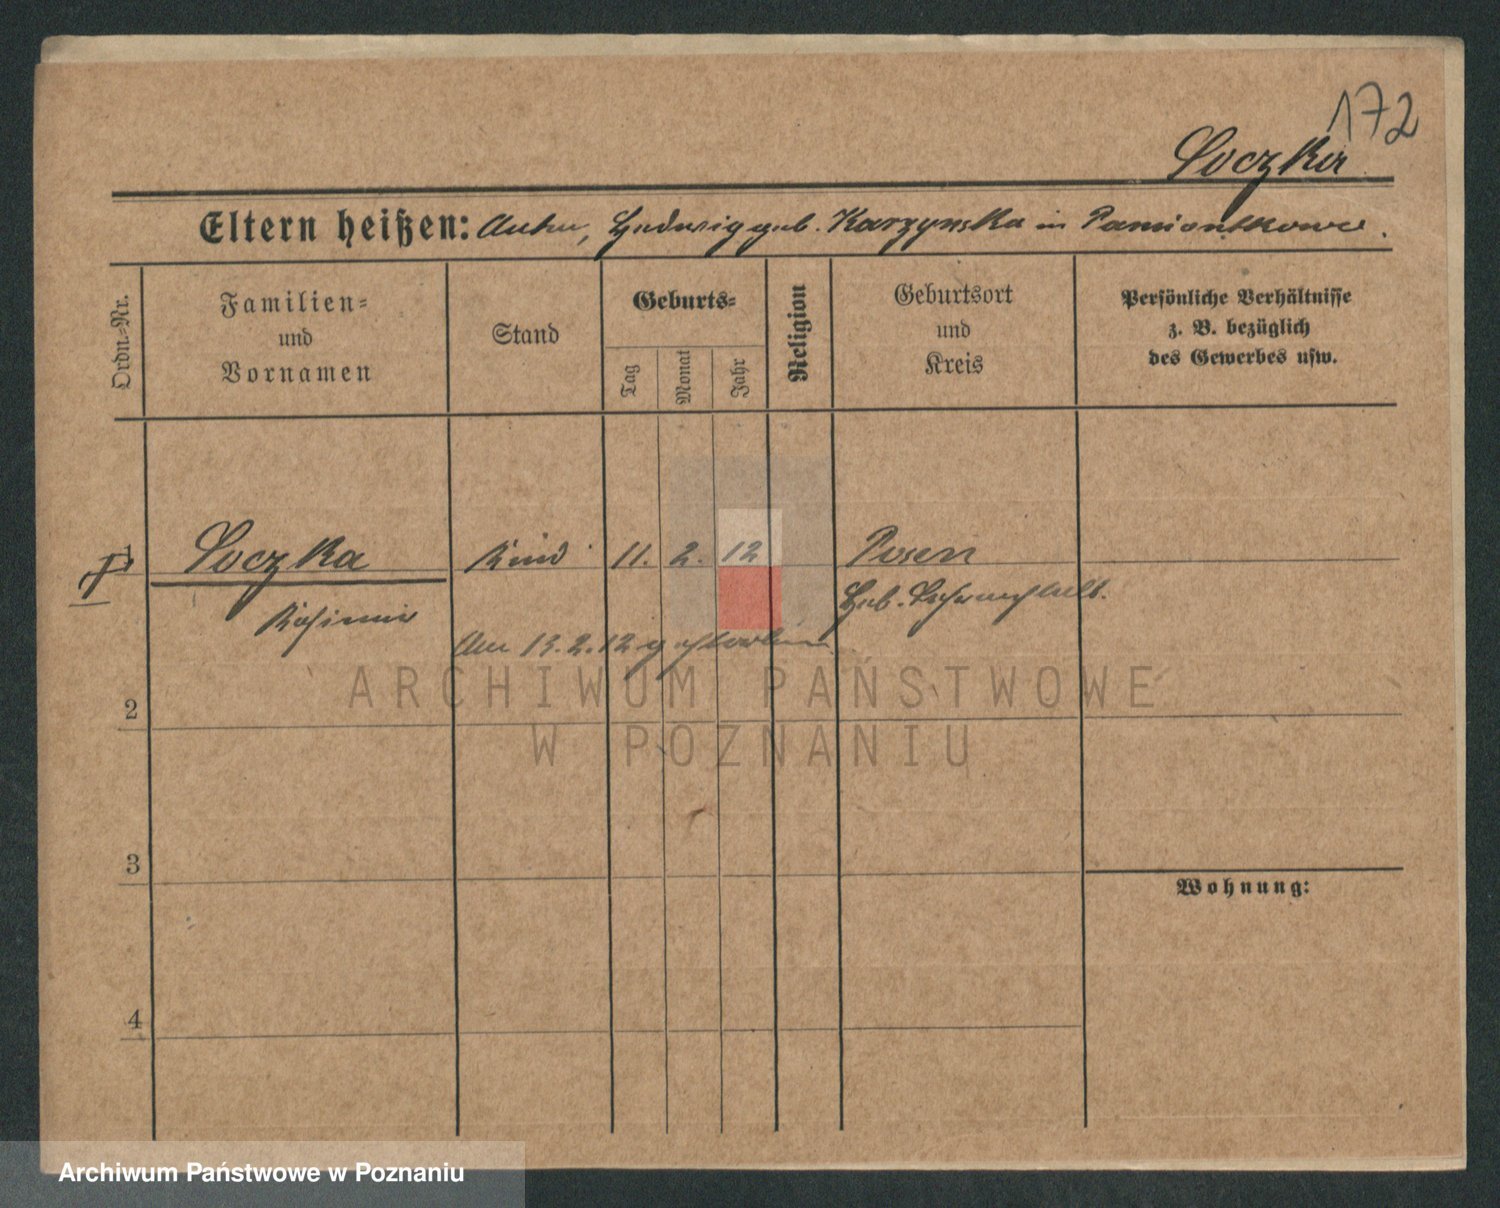 172
Soczka
Eltern heißen: Anton, Hedwig geb. Karzynska in Pamiontkowo.
Ordn.-Nr.
Familien-
und
Vornamen
Stand
Geburts-
Tag
Monat
Jahr
Religion
Geburtsort
und
Kreis
Persönliche Verhältnisse
z. B. bezüglich
des Gewerbes usw.
1 Soczka Kind 11. 2. 12 Posen
Kasimir Geb. Lehranstalt.
Am 13.2.12 gestorben
ARCHIWUM PAŃSTWOWE
W POZNANIU
2
3
Wohnung:
4
Archiwum Państwowe w Poznaniu